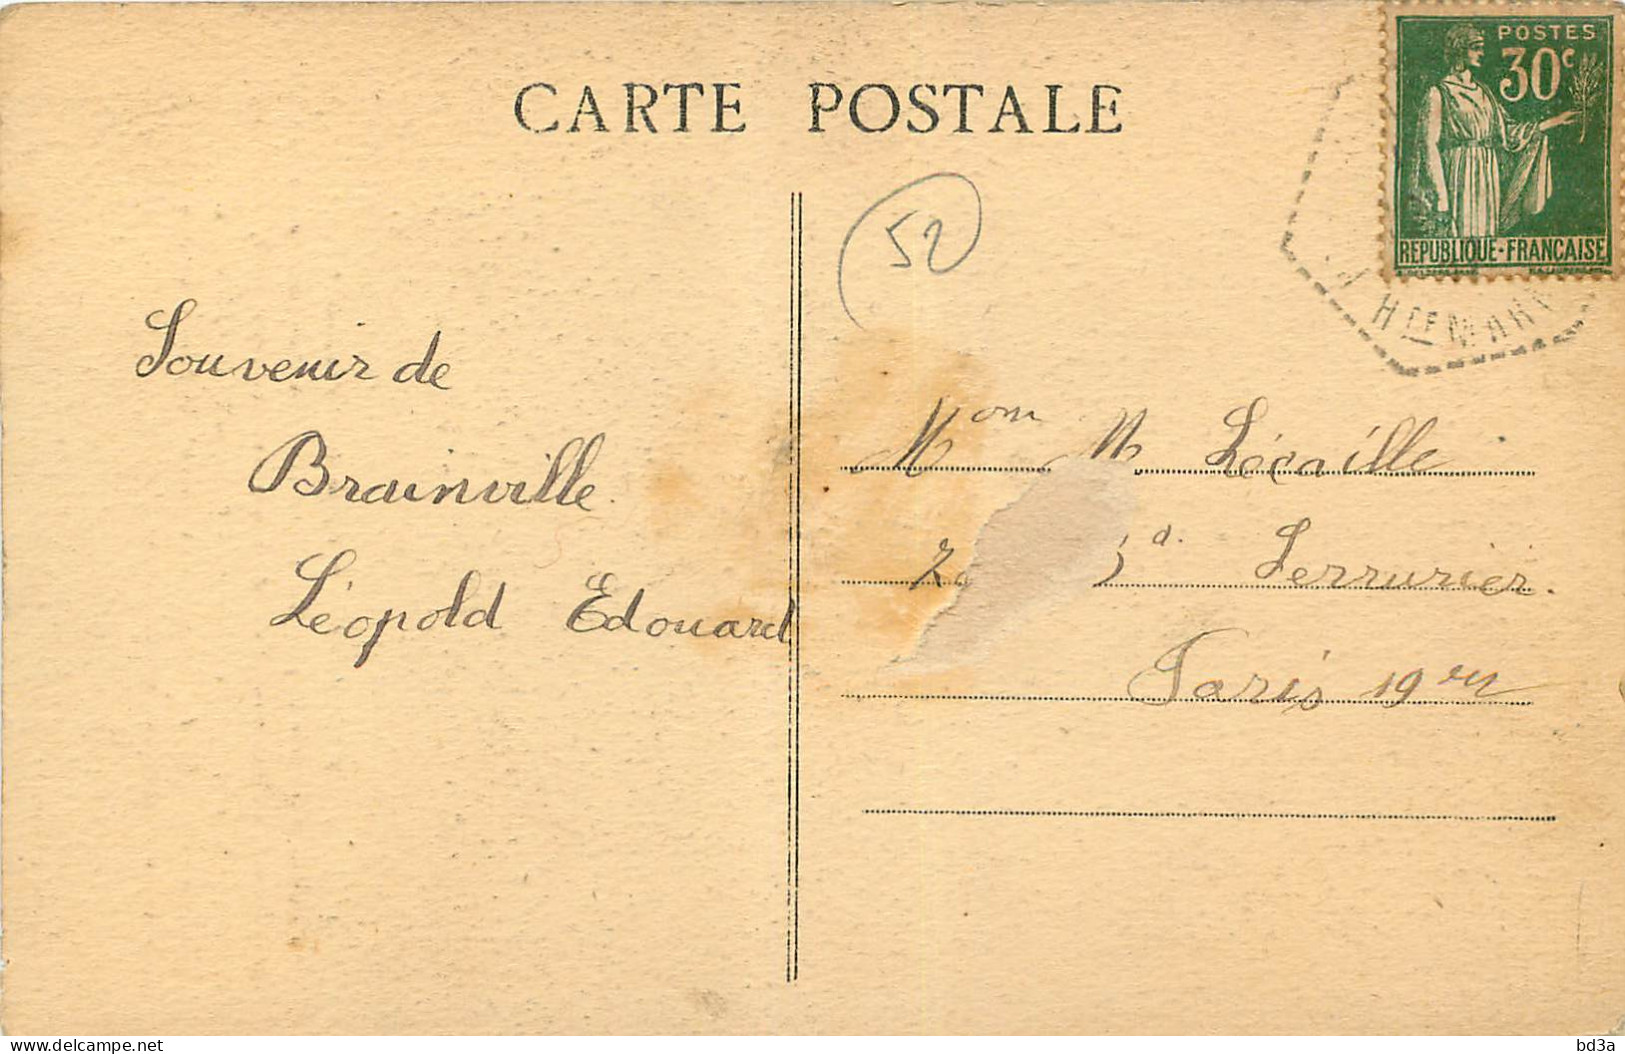 CARTE POSTALE
POSTES
30c
REPUBLIQUE-FRANCAISE
HTE MAR
52
Souvenir de
Brainville
Léopold Edouard
M M Lécaille
Serrurier.
Paris 19
delcampe.net
bd3a